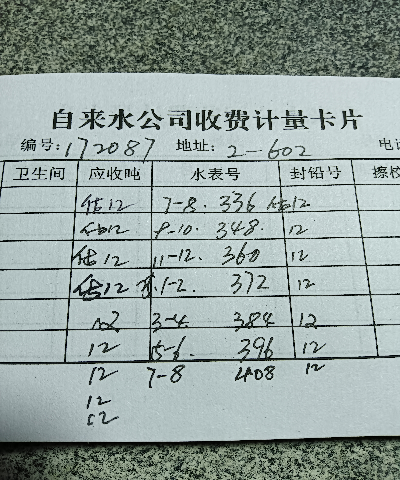 自来水公司收费计量卡片
编号: 172087 地址: 2-602 电话
卫生间 应收吨 水表号 封铅号 擦校
估12 7-8. 336 估12
估12 9-10. 348. 12
估12 11-12. 360 12
估12 1-2. 372 12
12 3-4 384 12
12 5-6. 396 12
12 7-8 408 12
12
12